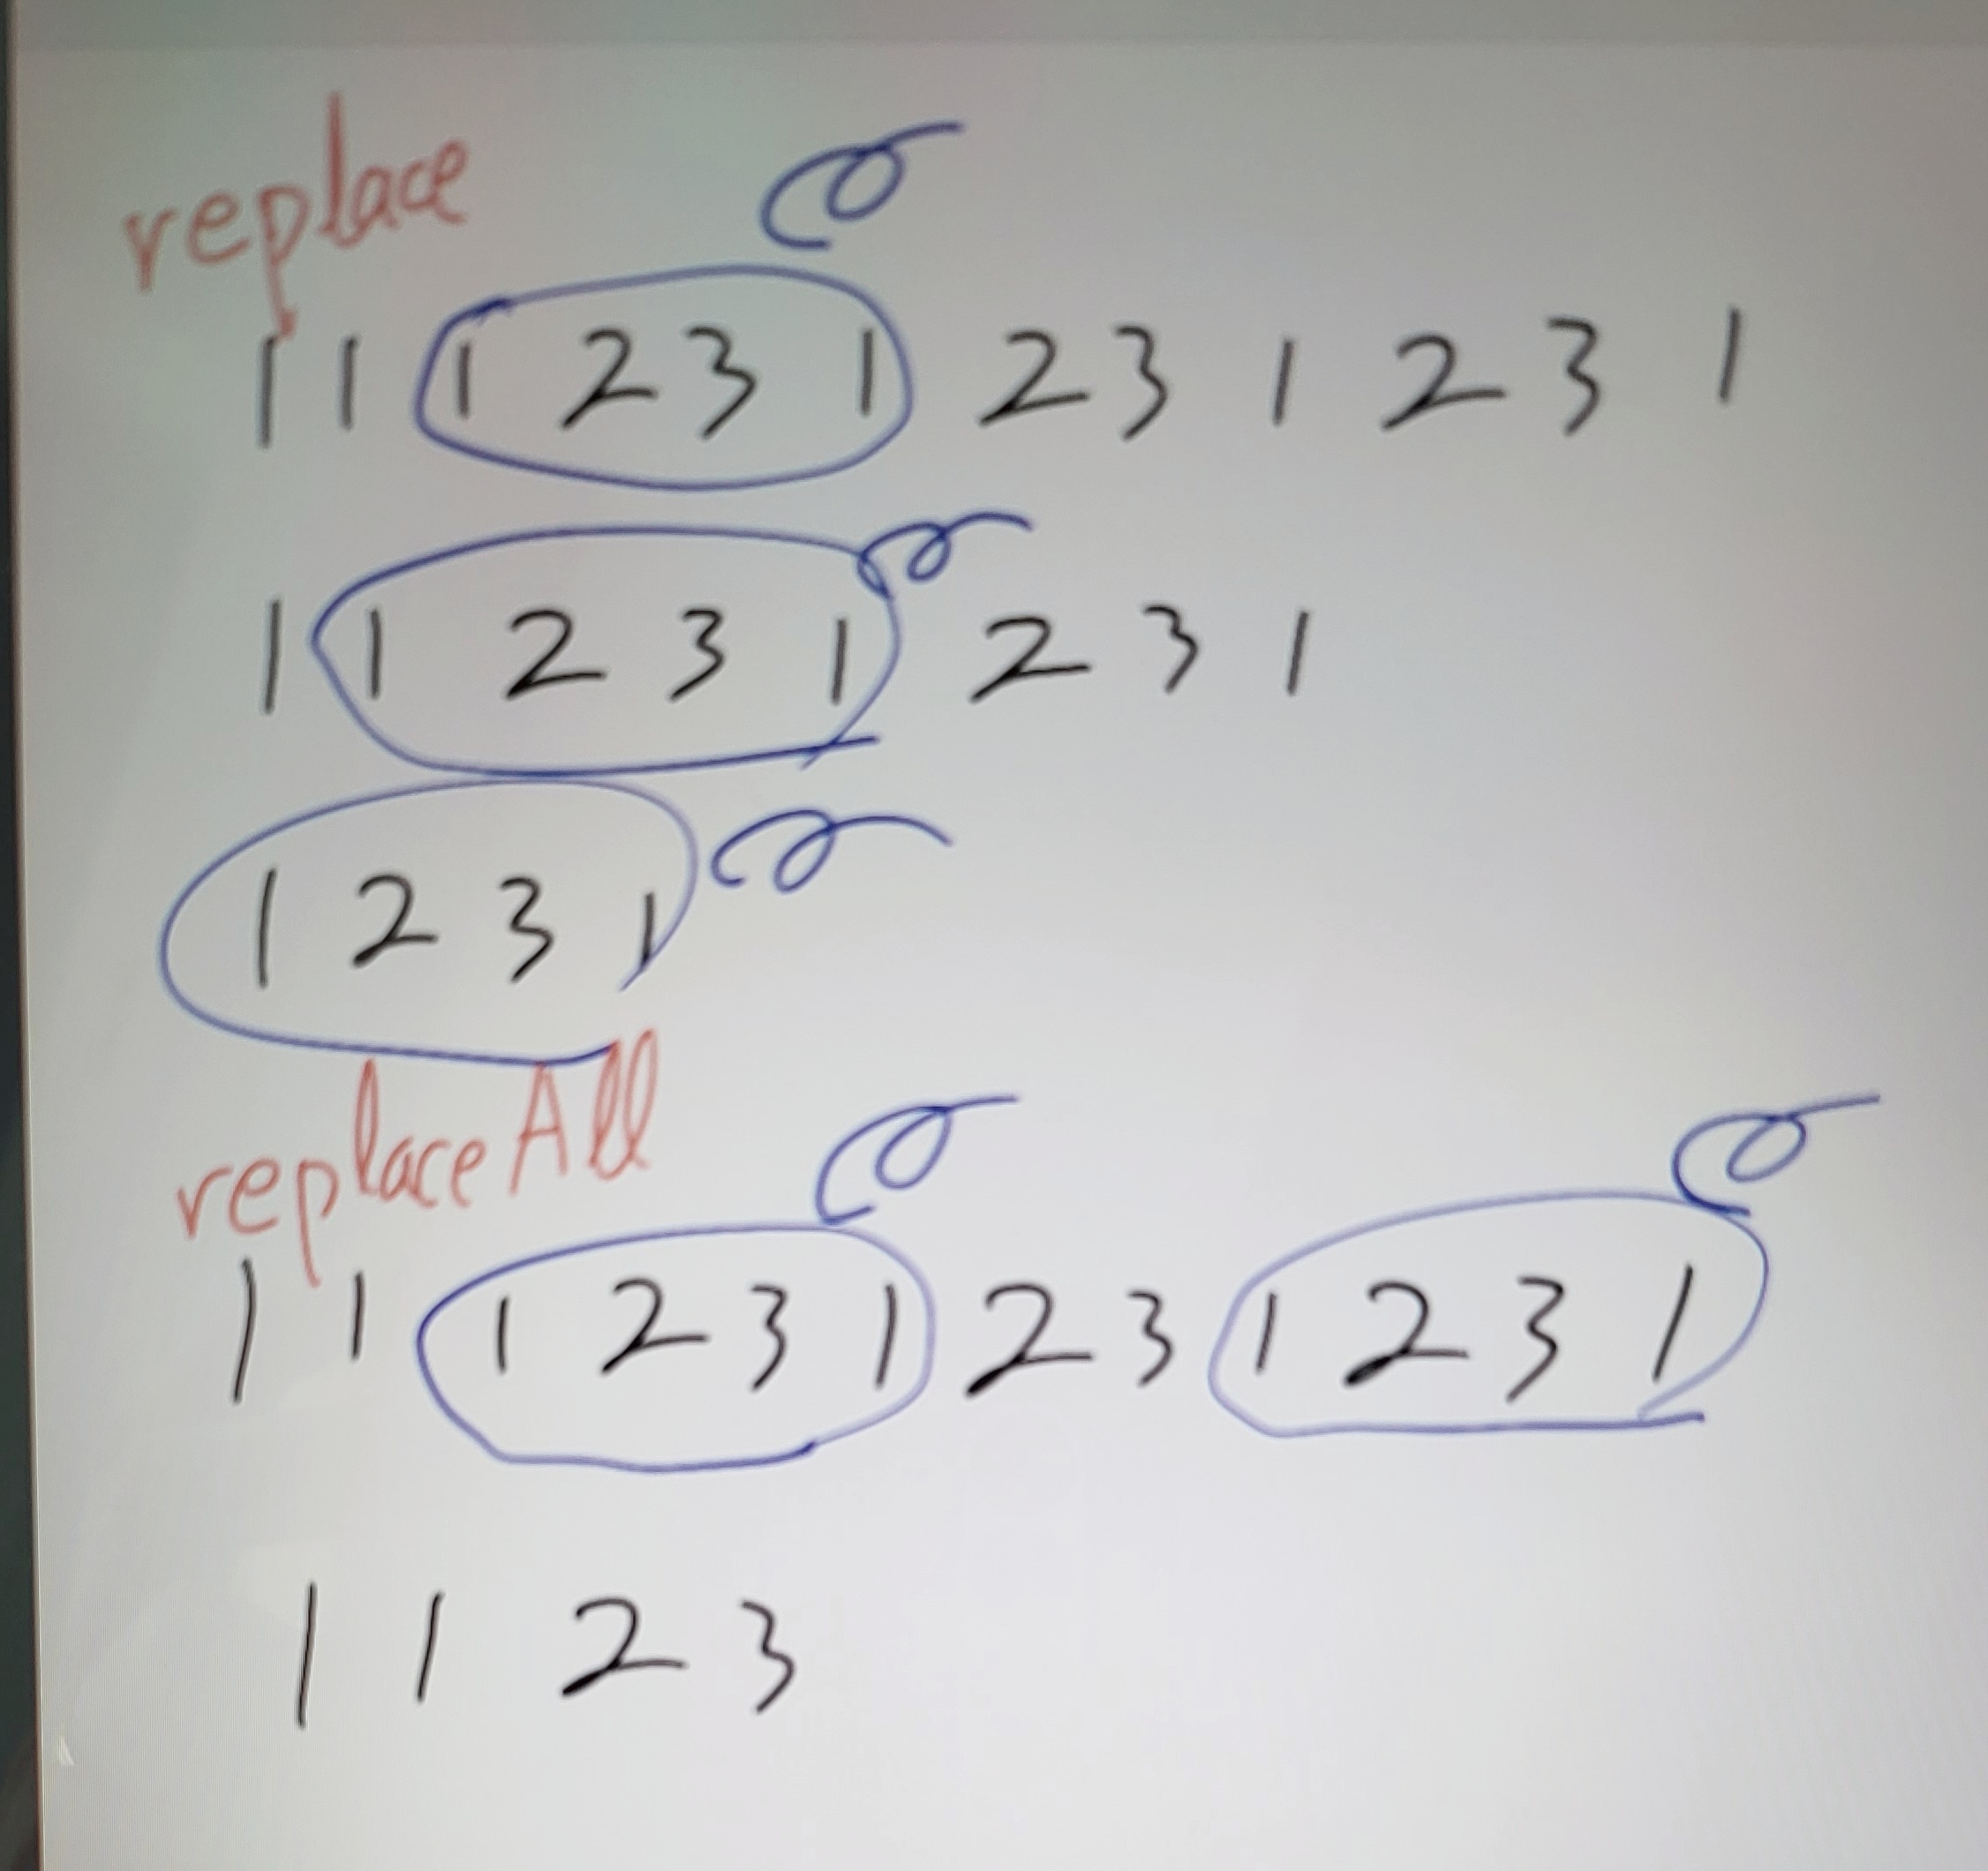 replace
1 1 1 2 3 1 2 3 1 2 3 1
1 1 2 3 1 2 3 1
1 2 3 1
replaceAll
1 1 1 2 3 1 2 3 1 2 3 1
1 1 2 3